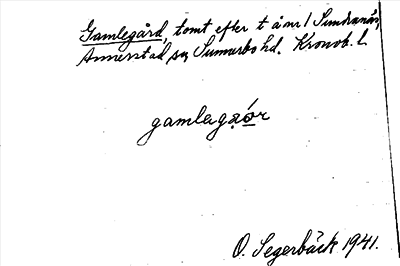 Gamlegård, tomt efter t å nr 1 Sundranäs,
Annerstad sn, Sunnerbo hd. Kronob. l.
gamlegaór
O. Segerbäck 1941.